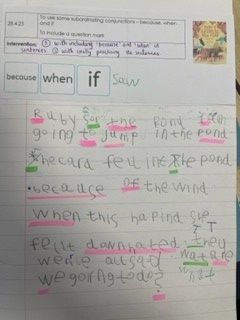 28.4.23
To use some subordinating conjunctions – because, when
and if
To include a question mark
Intervention: ① with including 'because' and 'when' in
sentences ② with orally practising the sentences
because when if Saw
Ruby the Pond
going to jump in the Pond
The card fell in the pond
because of the wind
when this hapind she
fellt
were
we going to do?